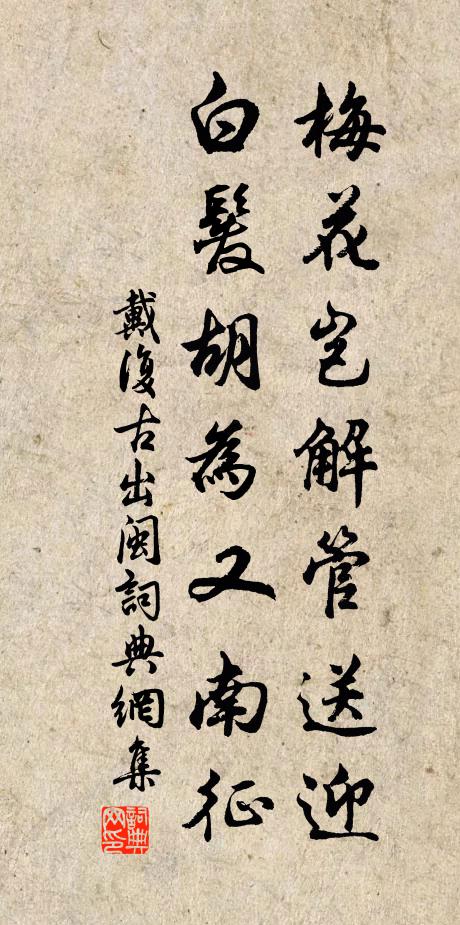 梅花岂解管送迎
白髮胡為又南征
戴復古出閩詞典網集
詞典网印